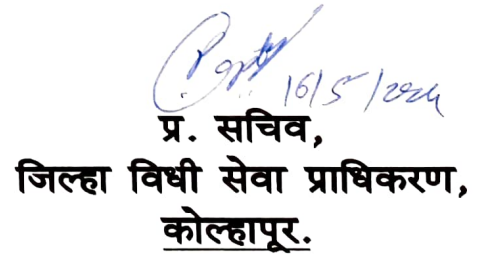 16/5/2024
प्र. सचिव,
जिल्हा विधी सेवा प्राधिकरण,
कोल्हापूर.